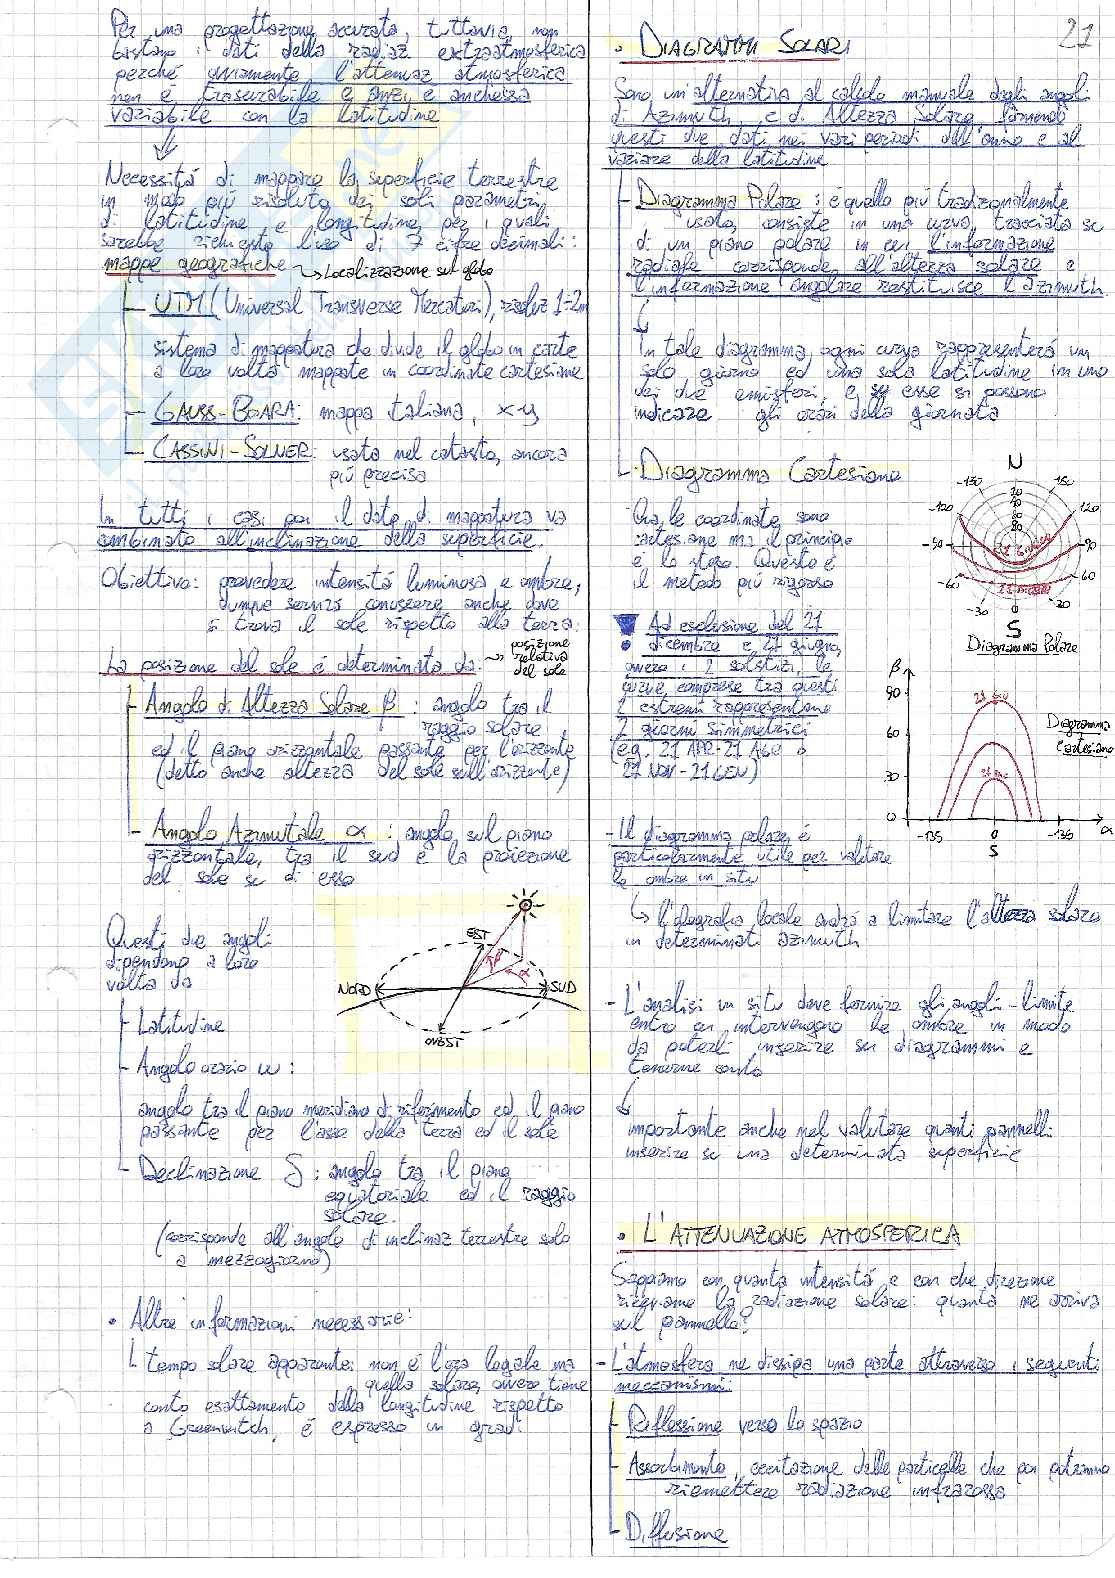 Per una progettazione accurata, tuttavia, non
bastano i dati della radiaz extraatmosferica
perché ovviamente, l'attenuaz atmosferica
non è trascurabile e anzi, è anch'essa
variabile con la latitudine
Necessità di mappare la superficie terrestre
in modo più risoluto dei soli parametri
di latitudine e longitudine, per i quali
sarebbe richiesto l'uso di 7 cifre decimali:
mappe geografiche → Localizzazione sul globo
UTM (Universal Transverse Mercator), risoluz 1÷2m
sistema di mappatura che divide il globo in carte
a loro volta mappate in coordinate cartesiane
GAUSS-BOARA: mappa italiana, x-y
CASSINI-SOLNER: usata nel catasto, ancora
più precisa
In tutti i casi poi il dato di mappatura va
combinato all'inclinazione della superficie.
Obiettivo: prevedere intensità luminosa e ombre,
dunque servirà conoscere anche dove
si trova il sole rispetto alla terra:
La posizione del sole è determinata da: → posizione
relativa
del sole
Angolo di Altezza Solare β: angolo tra il
raggio solare
ed il piano orizzontale passante per l'orizzonte
(detto anche altezza del sole sull'orizzonte)
Angolo Azimutale α: angolo, sul piano
orizzontale, tra il sud e la proiezione
del sole su di esso
Questi due angoli
dipendono a loro
volta da
EST
NORD
SUD
OVEST
β
α
Latitudine
Angolo orario ω:
angolo tra il piano meridiano di riferimento ed il piano
passante per l'asse della terra ed il sole
Declinazione δ: angolo tra il piano
equatoriale ed il raggio
solare.
(corrisponde all'angolo di inclinaz terrestre solo
a mezzogiorno)
• Altre informazioni necessarie:
tempo solare apparente: non è l'ora legale ma
quella solare, ovvero tiene
conto esattamento della longitudine rispetto
a Greenwitch, è espresso in gradi
21
• DIAGRAMMI SOLARI
Sono un'alternativa al calcolo manuale degli angoli
di Azimuth e di Altezza Solare, fornendo
questi due dati nei vari periodi dell'anno e al
variare della latitudine
Diagramma Polare: è quello più tradizionalmente
usato, consiste in una curva tracciata su
di un piano polare in cui l'informazione
radiale corrisponde all'altezza solare e
l'informazione angolare restituisce l'azimuth.
In tale diagramma, ogni curva rappresenterà un
solo giorno ed una sola latitudine in uno
dei due emisferi, e su esse si possono
indicare gli orari della giornata
Diagramma Cartesiano
Qua, le coordinate sono
cartesiane ma il principio
è lo stesso. Questo è
il metodo più rigoroso
N
-150
150
-120
120
-90
90
-60
60
-30
30
0
S
Diagramma Polare
Ad esclusione del 21
dicembre e 21 giugno,
ovvero i 2 solstizi, le
curve comprese tra questi
2 estremi rappresentano
2 giorni simmetrici
(e.g. 21 APR-21 AGO o
21 NOV-21 GEN)
β
90
60
30
0
-135
0
135
α
S
Diagramma
Cartesiano
- Il diagramma polare è
particolarmente utile per valutare
le ombre in situ
↳ l'orografia locale andrà a limitare l'altezza solare
in determinati azimuth
- L'analisi in situ deve fornire gli angoli-limite
entro cui intervengono le ombre in modo
da poterli inserire sui diagrammi e
tenerne conto
importante anche nel valutare quanti pannelli
inserire su una determinata superficie
• L'ATTENUAZIONE ATMOSFERICA
Sappiamo con quanta intensità e con che direzione
riceviamo la radiazione solare: quanta ne arriva
sul pannello?
- L'atmosfera ne dissipa una parte attraverso i seguenti
meccanismi:
Riflessione verso lo spazio
Assorbimento, eccitazione delle particelle che poi potranno
riemettere radiazione infrarossa
Diffusione